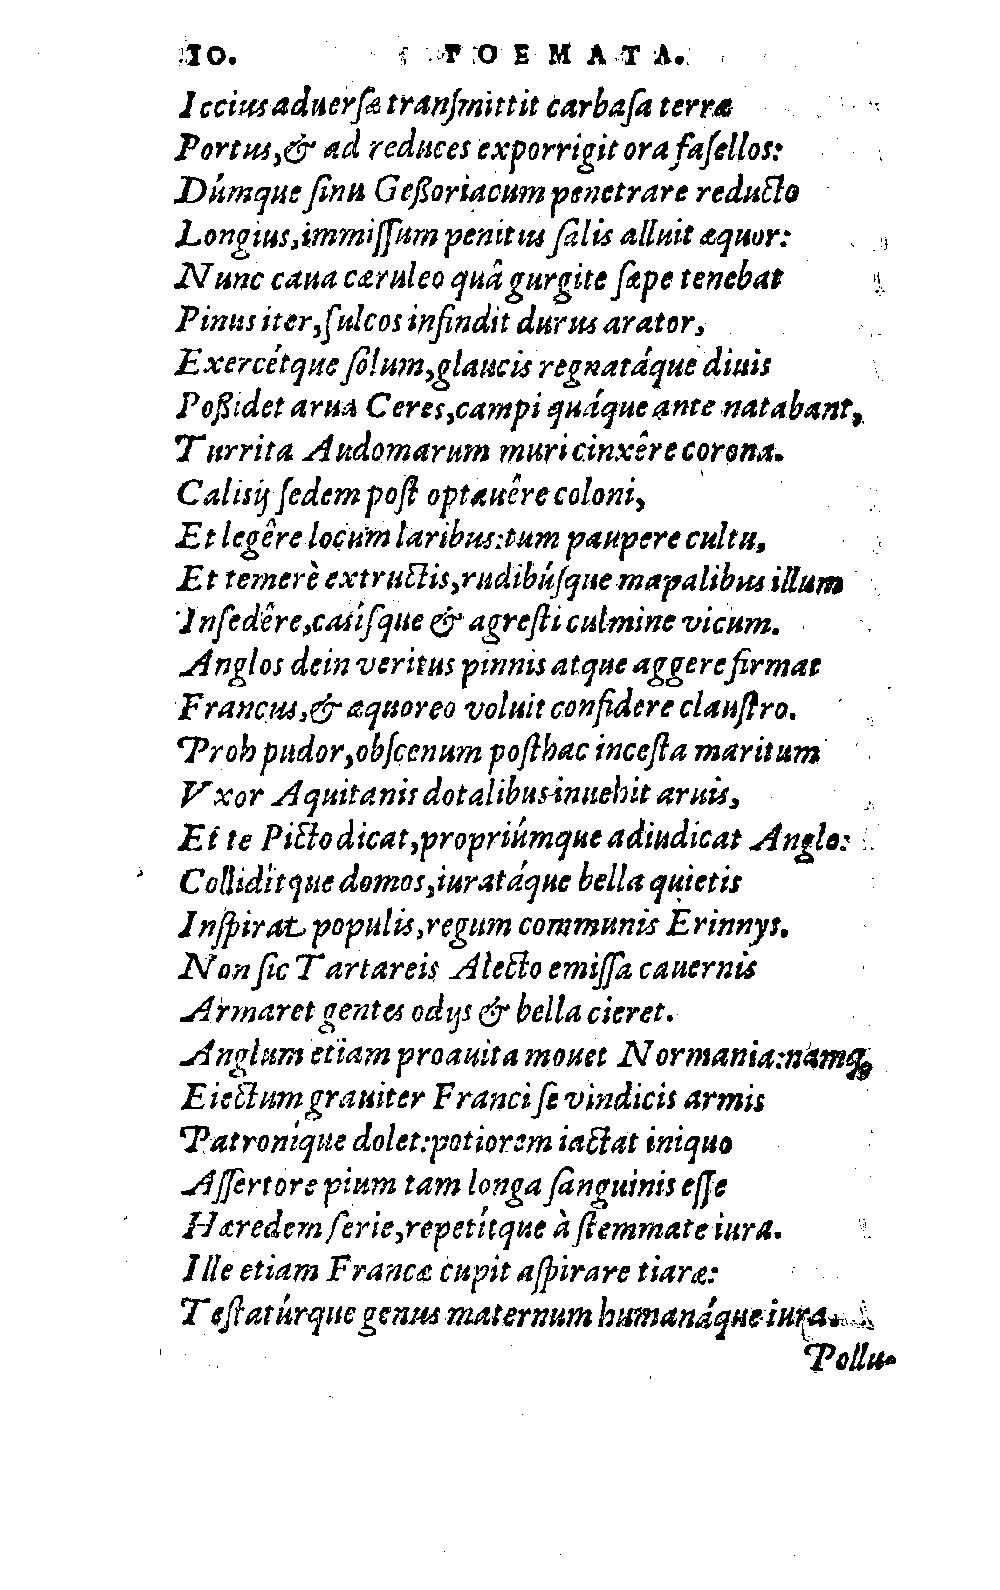 10. POEMATA.
Iccius aduerſæ tranſmittit carbaſa terræ
Portus, & ad reduces exporrigit ora faſellos:
Dúmque ſinu Geßoriacum penetrare reducto
Longius, immiſſum penitus ſalis alluit æquor:
Nunc caua cæruleo quâ gurgite ſæpe tenebat
Pinus iter, ſulcos infindit durus arator,
Exercétque ſolum, glaucis regnatáque diuis
Poßidet arua Ceres, campi quáque ante natabant,
Turrita Audomarum muri cinxêre corona.
Calisij ſedem poſt optauêre coloni,
Et legêre locum laribus: tum paupere cultu,
Et temerè extructis, rudibúſque mapalibus illum
Inſedêre, caſíſque & agreſti culmine vicum.
Anglos dein veritus pinnis atque aggere firmat
Francus, & æquoreo voluit confidere clauſtro.
Proh pudor, obſcenum poſthac inceſta maritum
Vxor Aquitanis dotalibus inuehit aruis,
Et te Picto dicat, propriúmque adiudicat Anglo:
Collidítque domos, iuratáque bella quietis
Inſpirat populis, regum communis Erinnys.
Non ſic Tartareis Alecto emiſſa cauernis
Armaret gentes odijs & bella cieret.
Anglum etiam proauita mouet Normania: namq;
Eiectum grauiter Franci ſe vindicis armis
Patroníque dolet: potiorem iactat iniquo
Aſſertore pium tam longa ſanguinis eſſe
Hæredem ſerie, repetítque à ſtemmate iura.
Ille etiam Francæ cupit aſpirare tiaræ:
Teſtatúrque genus maternum humanáque iura.
Pollu-